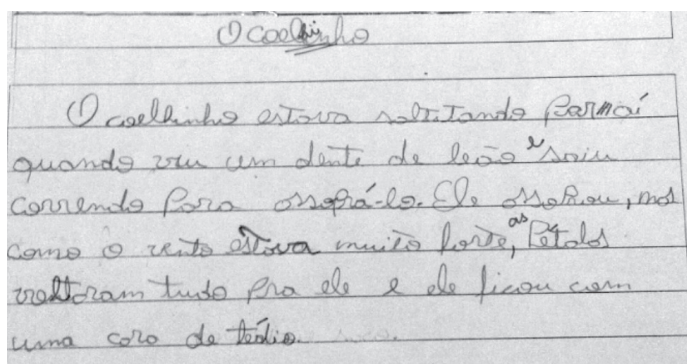 O coelhinho
O coellinho estava saltitando parmaí
quando viu um dente de leão e saiu
correndo para assoprá-lo. Ele assoprou, mas
como o vento estava muito forte, as pétalas
voltaram tudo pra ele e ele ficou com
uma cara de tédio.